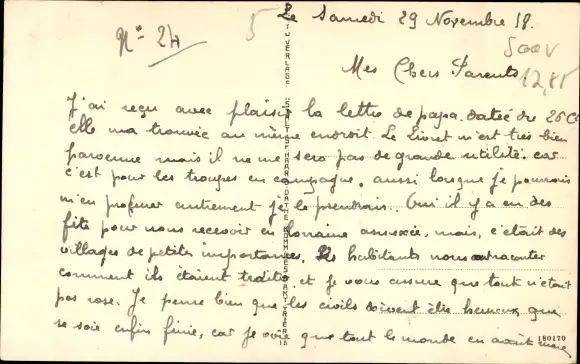 Le Samedi 29 Novembre 18.
N° 24
5
Mes Chers Parents
J'ai reçu avec plaisir la lettre de papa datée du 26 Ct
elle m'a trouvée au même endroit. Le Livret m'est très bien
parvenue mais il ne me sera pas de grande utilité. car
c'est pour les troupes en campagne, aussi lorsque je pourrais
m'en profiter autrement je le prendrais. Oui il y a eu des
fête pour nous recevoir en Lorraine annexée, mais, c'était des
villages de petites importances. Les habitants nous raconter
comment ils étaient traités, et je vous assure que tout n'était
pas rose. Je pense bien que les civils doivent êtes heureux que
se soie enfin finie, car je vois que tout le monde en avait marre
180170